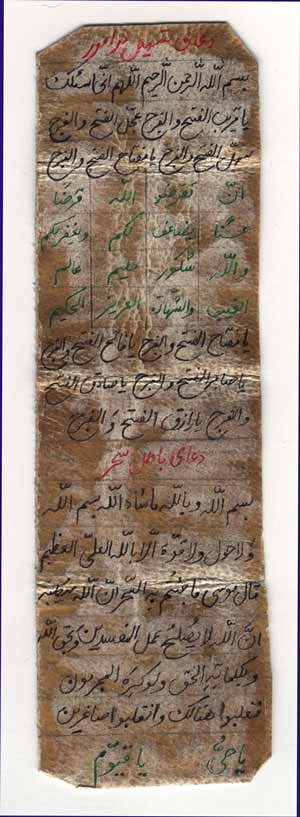 دعای تسهیل در امور
بسم الله الرحمن الرحیم اللهم انی اسئلک
یا قریب الفتح والفرج عجل الفتح والفرج
سهل الفتح والفرج یا مفتاح الفتح والفرج
ان تقرضو الله قرضا
حسنا یضاعف لکم ویغفر لکم
والله شکور حلیم عالم
الغیب والشهادة العزیز الحکیم
یا مفتاح الفتح والفرج یا فاتح الفتح والفرج
یا صابر الفتح والفرج یا صادق الفتح
والفرج یا رازق الفتح والفرج
دعای باطل سحر
بسم الله وبالله ماشاء الله بسم الله
ولا حول ولا قوة الا بالله العلی العظیم
قال موسی ما جئتم به السحر ان الله سیبطله
ان الله لا یصلح عمل المفسدین ویحق الله
بکلماته الحق ولو کره المجرمون
فغلبوا هنالک وانقلبوا صاغرین
یا حی یا قیوم